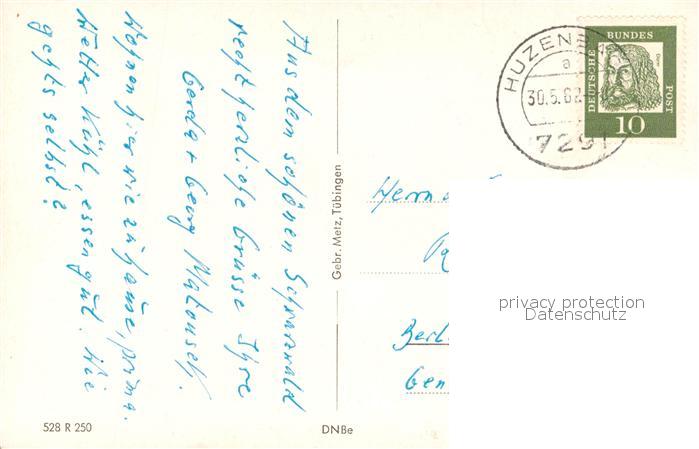 Aus dem schönen Schwarzwald
recht herzliche Grüsse Ihre
Gerda + Georg Matousek.
hier wie zuhause, prima.
Wetter kühl, essen gut. Wie
gehts selbst?
Gebr. Metz, Tübingen
528 R 250
DNBe
HUZENB
a
30.5.62
7291
DEUTSCHE BUNDES POST
Dürer
10
Herrn
Berl
privacy protection
Datenschutz